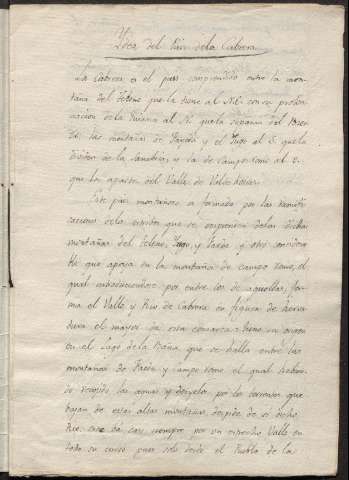 Ydea del Pais de la Cabrera
La Cabrera es el pais comprendido entre la mon-
taña del Teleno que la tiene al N.E. con su prolon-
gacion de la Guiana al N. que la separa del Bier-
zo, las montañas de y el al S. que la
dividen de la Sanabria, y la de Campo romo al O.
que la aparta del Valle de Valdeorras.
Este pais montañoso es formado por las ramifi-
caciones de la que se desprenden de las dichas
montañas del Teleno, y y otro
que apoya en la montaña de campo romo, el
qual introduciendose por entre los de aquellas, for-
ma el Valle y Rio de Cabrera en figura de herra-
dura el mayor de esta comarca tiene su origen
en el Lago de la Baña que se halla entre las
montañas de y campo romo el qual
do recogido las aguas y por los torrentes que
bajan de estas altas montañas despide de si dicho
Rio, este va casi siempre por un estrecho Valle en
todo su curso pues solo desde el Pueblo de la